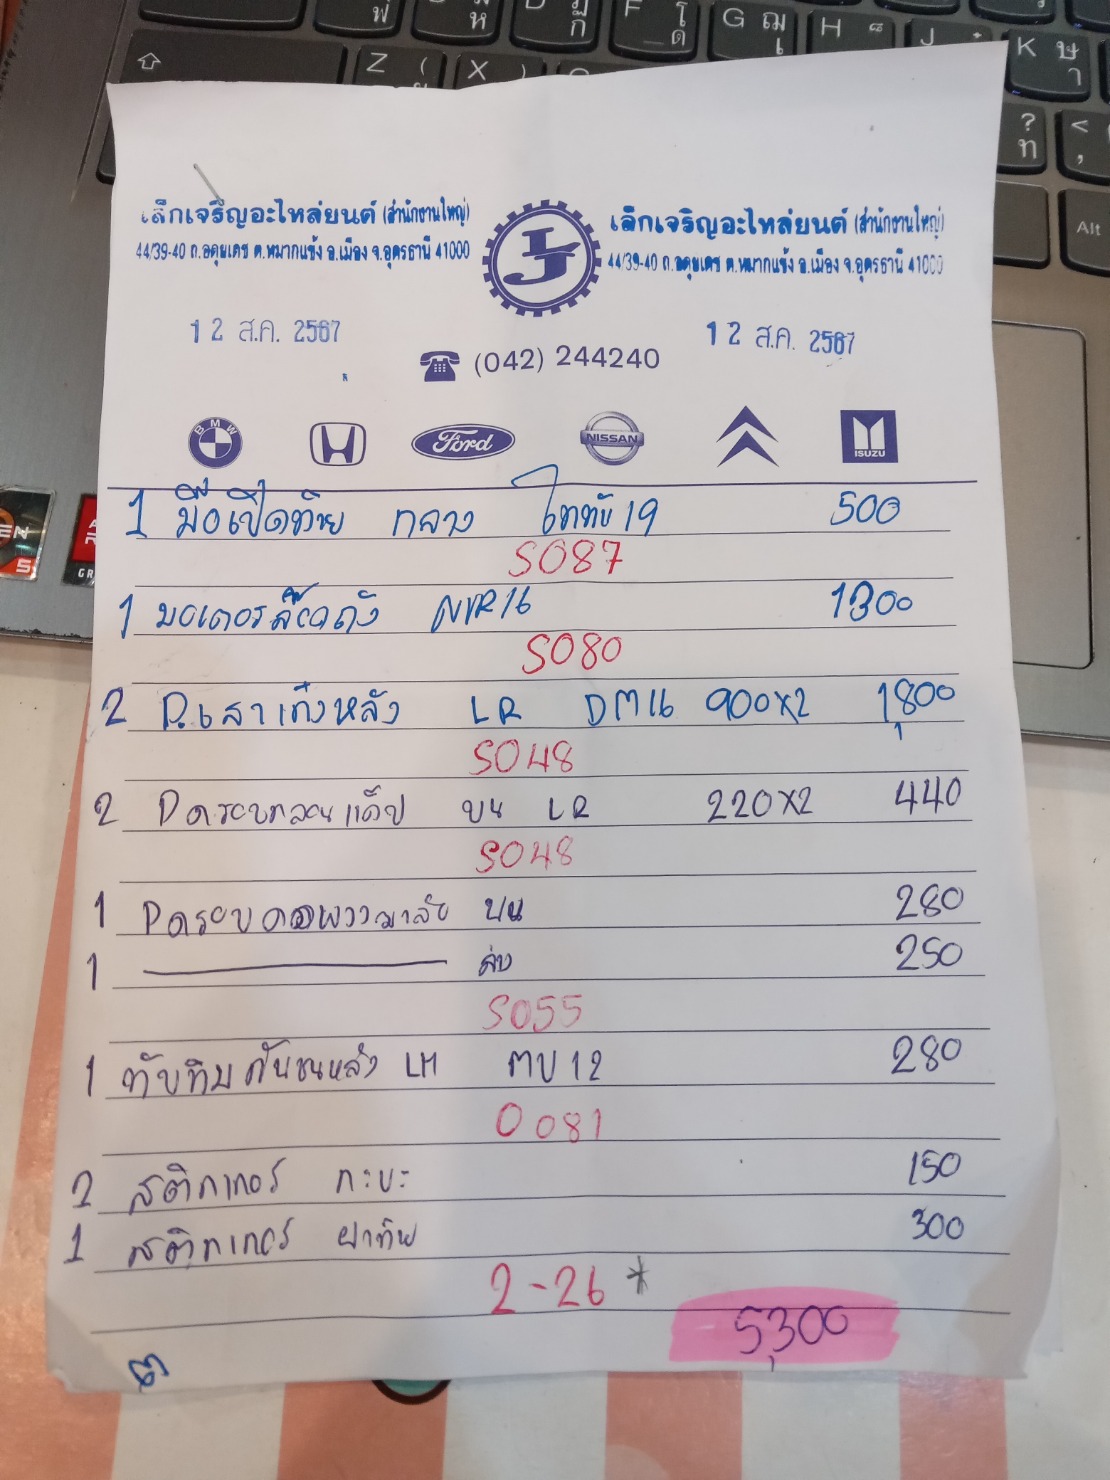 เล็กเจริญอะไหล่ยนต์ (สำนักงานใหญ่)
44/39-40 ถ.อดุยเดช ต.หมากแข้ง อ.เมือง จ.อุดรธานี 41000
12 ส.ค. 2567
LJ
เล็กเจริญอะไหล่ยนต์ (สำนักงานใหญ่)
44/39-40 ถ.อดุยเดช ต.หมากแข้ง อ.เมือง จ.อุดรธานี 41000
12 ส.ค. 2567
(042) 244240
BMW H Ford NISSAN ISUZU
1 มือเปิดท้าย กลาง ไททัน 19 500
S087
1 มอเตอร์ล๊อคถัง NVR16 1300
S080
2 P.เสาเก๋งหลัง LR DM16 900x2 1,800
S048
2 Pครอบกลอนแค๊ป บน LR 220x2 440
S048
1 Pครอบคอพวงมาลัย บน 280
1 ล่าง 250
S055
1 ทับทิมกันชนหลัง LH ตบ12 280
0081
2 สติกเกอร์ กะบะ 150
1 สติกเกอร์ ฝาท้าย 300
2-26 *
5,300